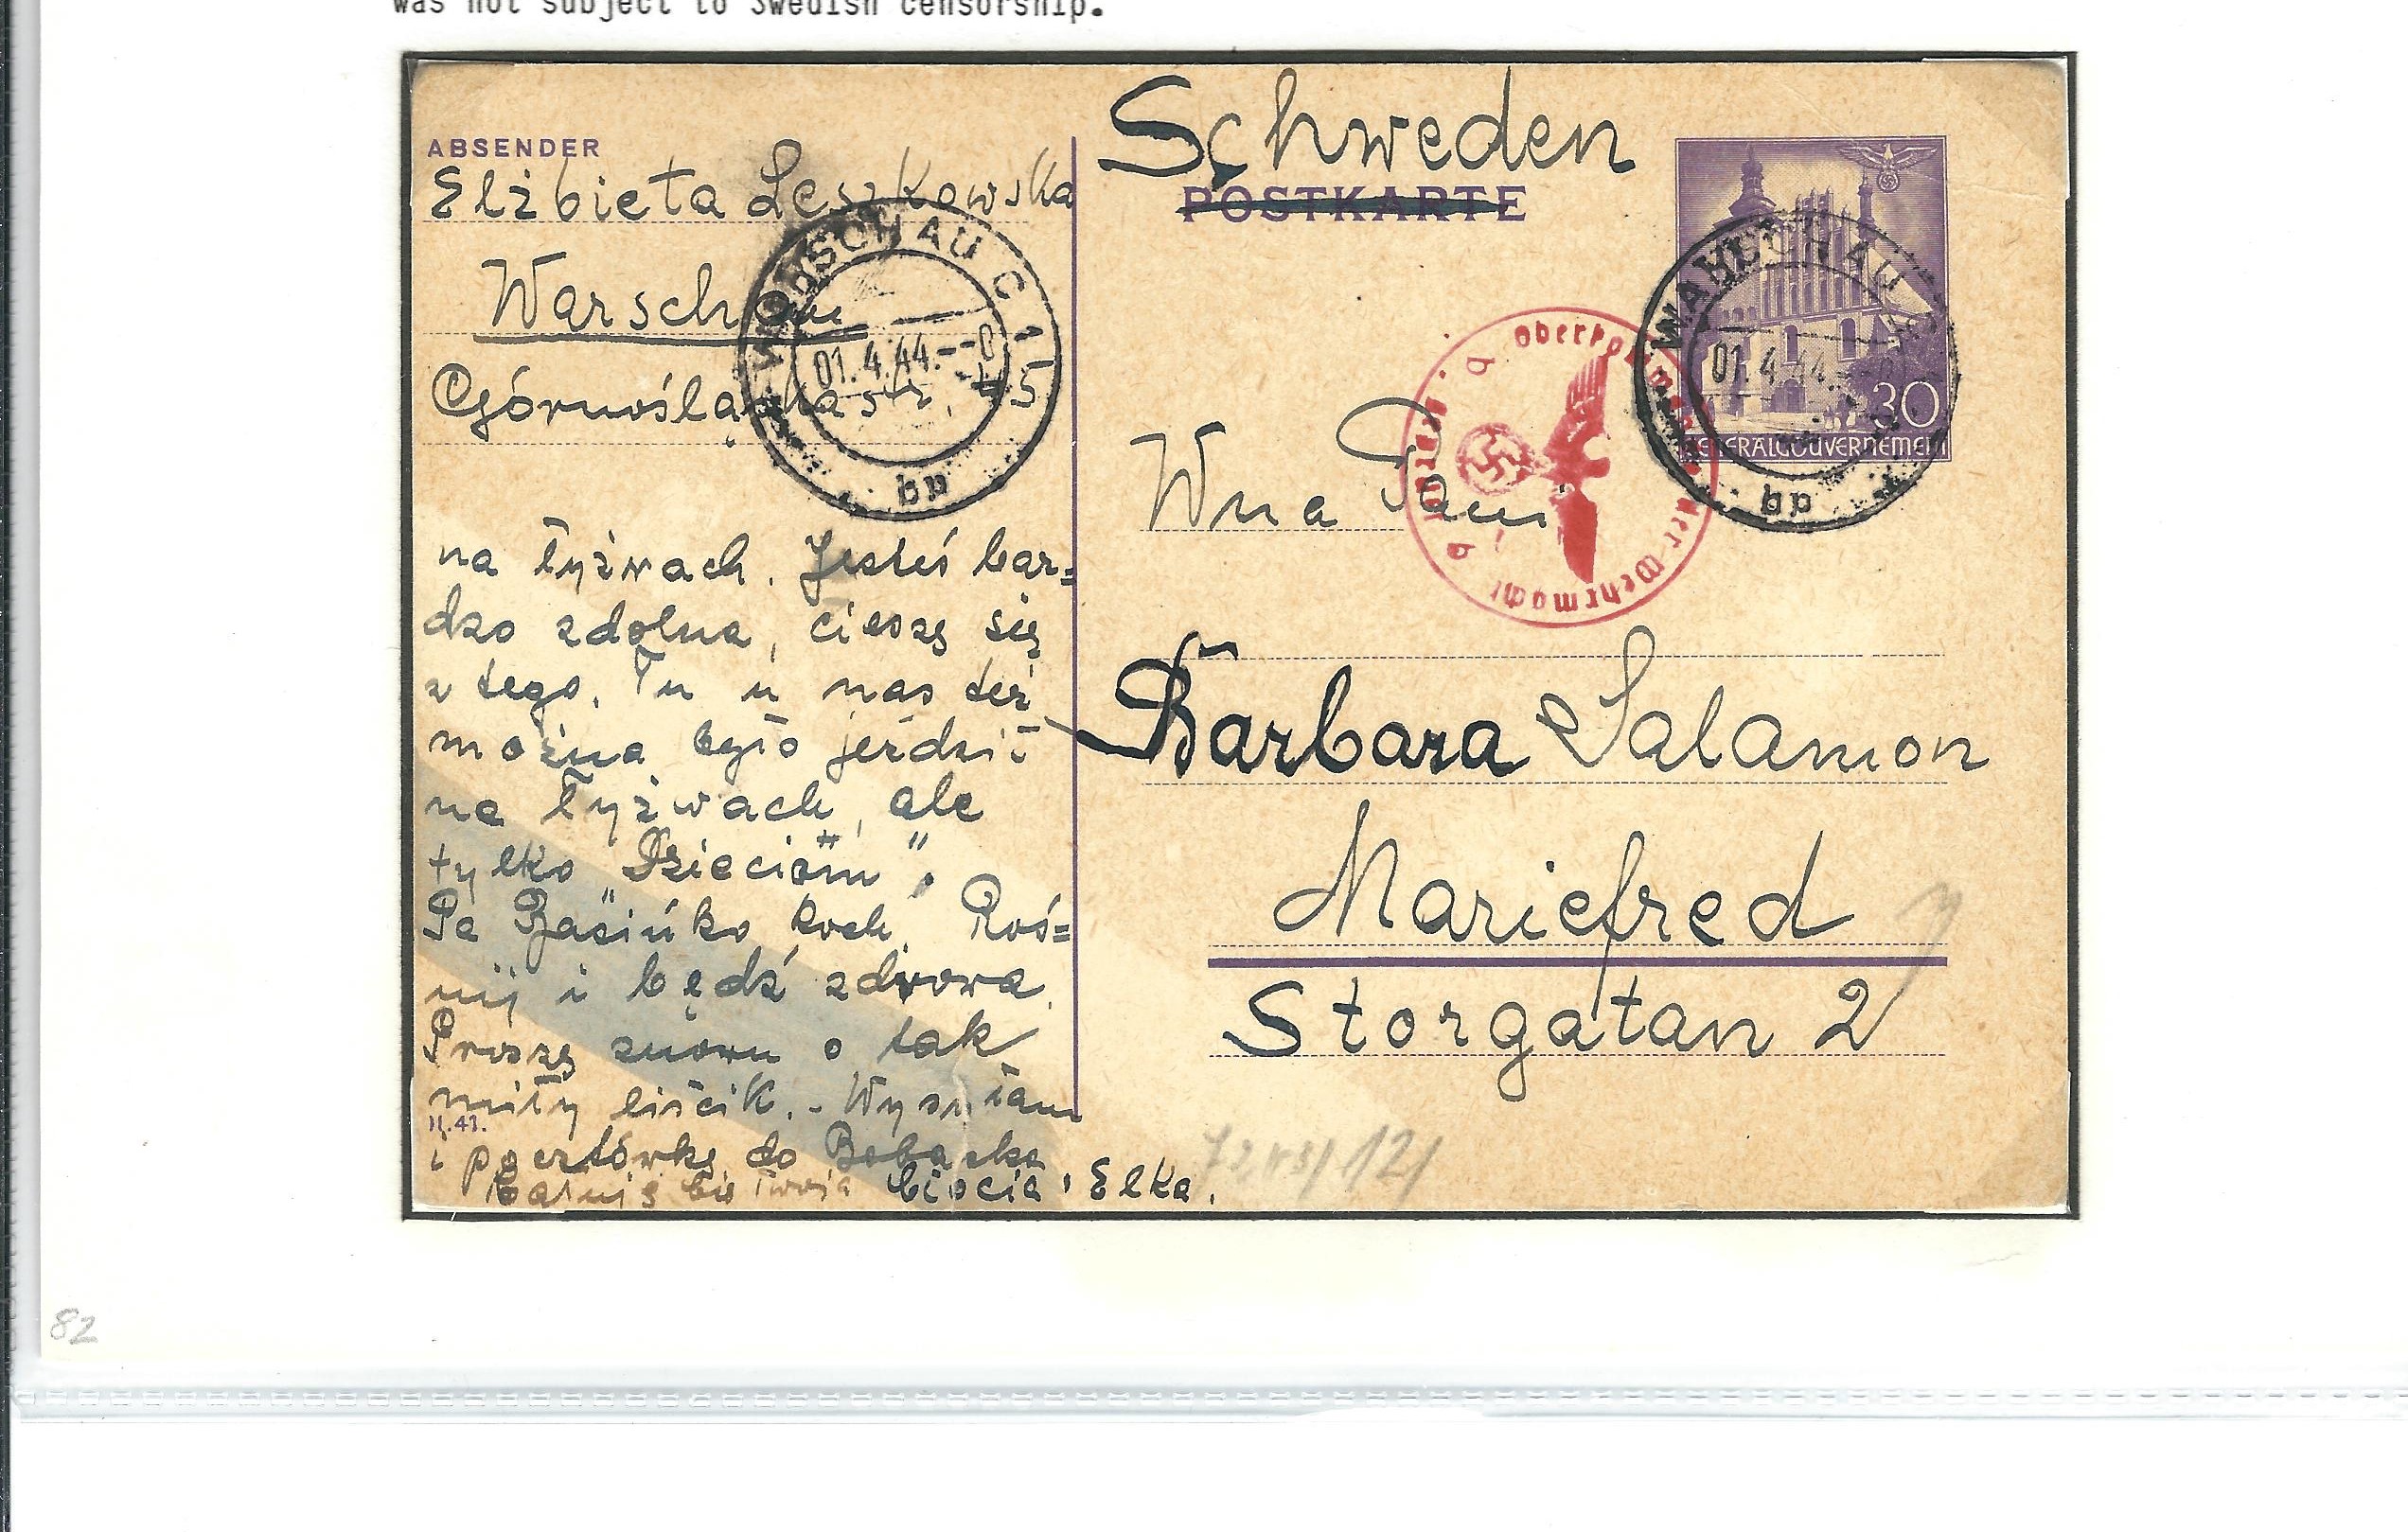 was not subject to Swedish censorship.
ABSENDER
Elżbieta Leszkowska
Warschau
Górnośląska str. 45
WARSCHAU C 1
01.4.44.--0
bp
na łyżwach. Jesteś bar=
dzo zdolna, cieszę się
z tego. Tu u nas też
można było jeździć
na łyżwach, ale
tylko „Dzieciom".
Pa Basińko koch. Roś=
nij i bądź zdrowa.
Proszę znowu o tak
miły liścik. - Wysyłam
II.41.
i pocztówkę do
Całuję Cię Twoja Ciocia Elka.
Schweden
POSTKARTE
30
GENERALGOUVERNEMENT
WARSCHAU
01.4.44.
Oberkommando der Wehrmacht
Geprüft
b
b
Wna Pani
Barbara Salamon
Mariefred
Storgatan 2
82